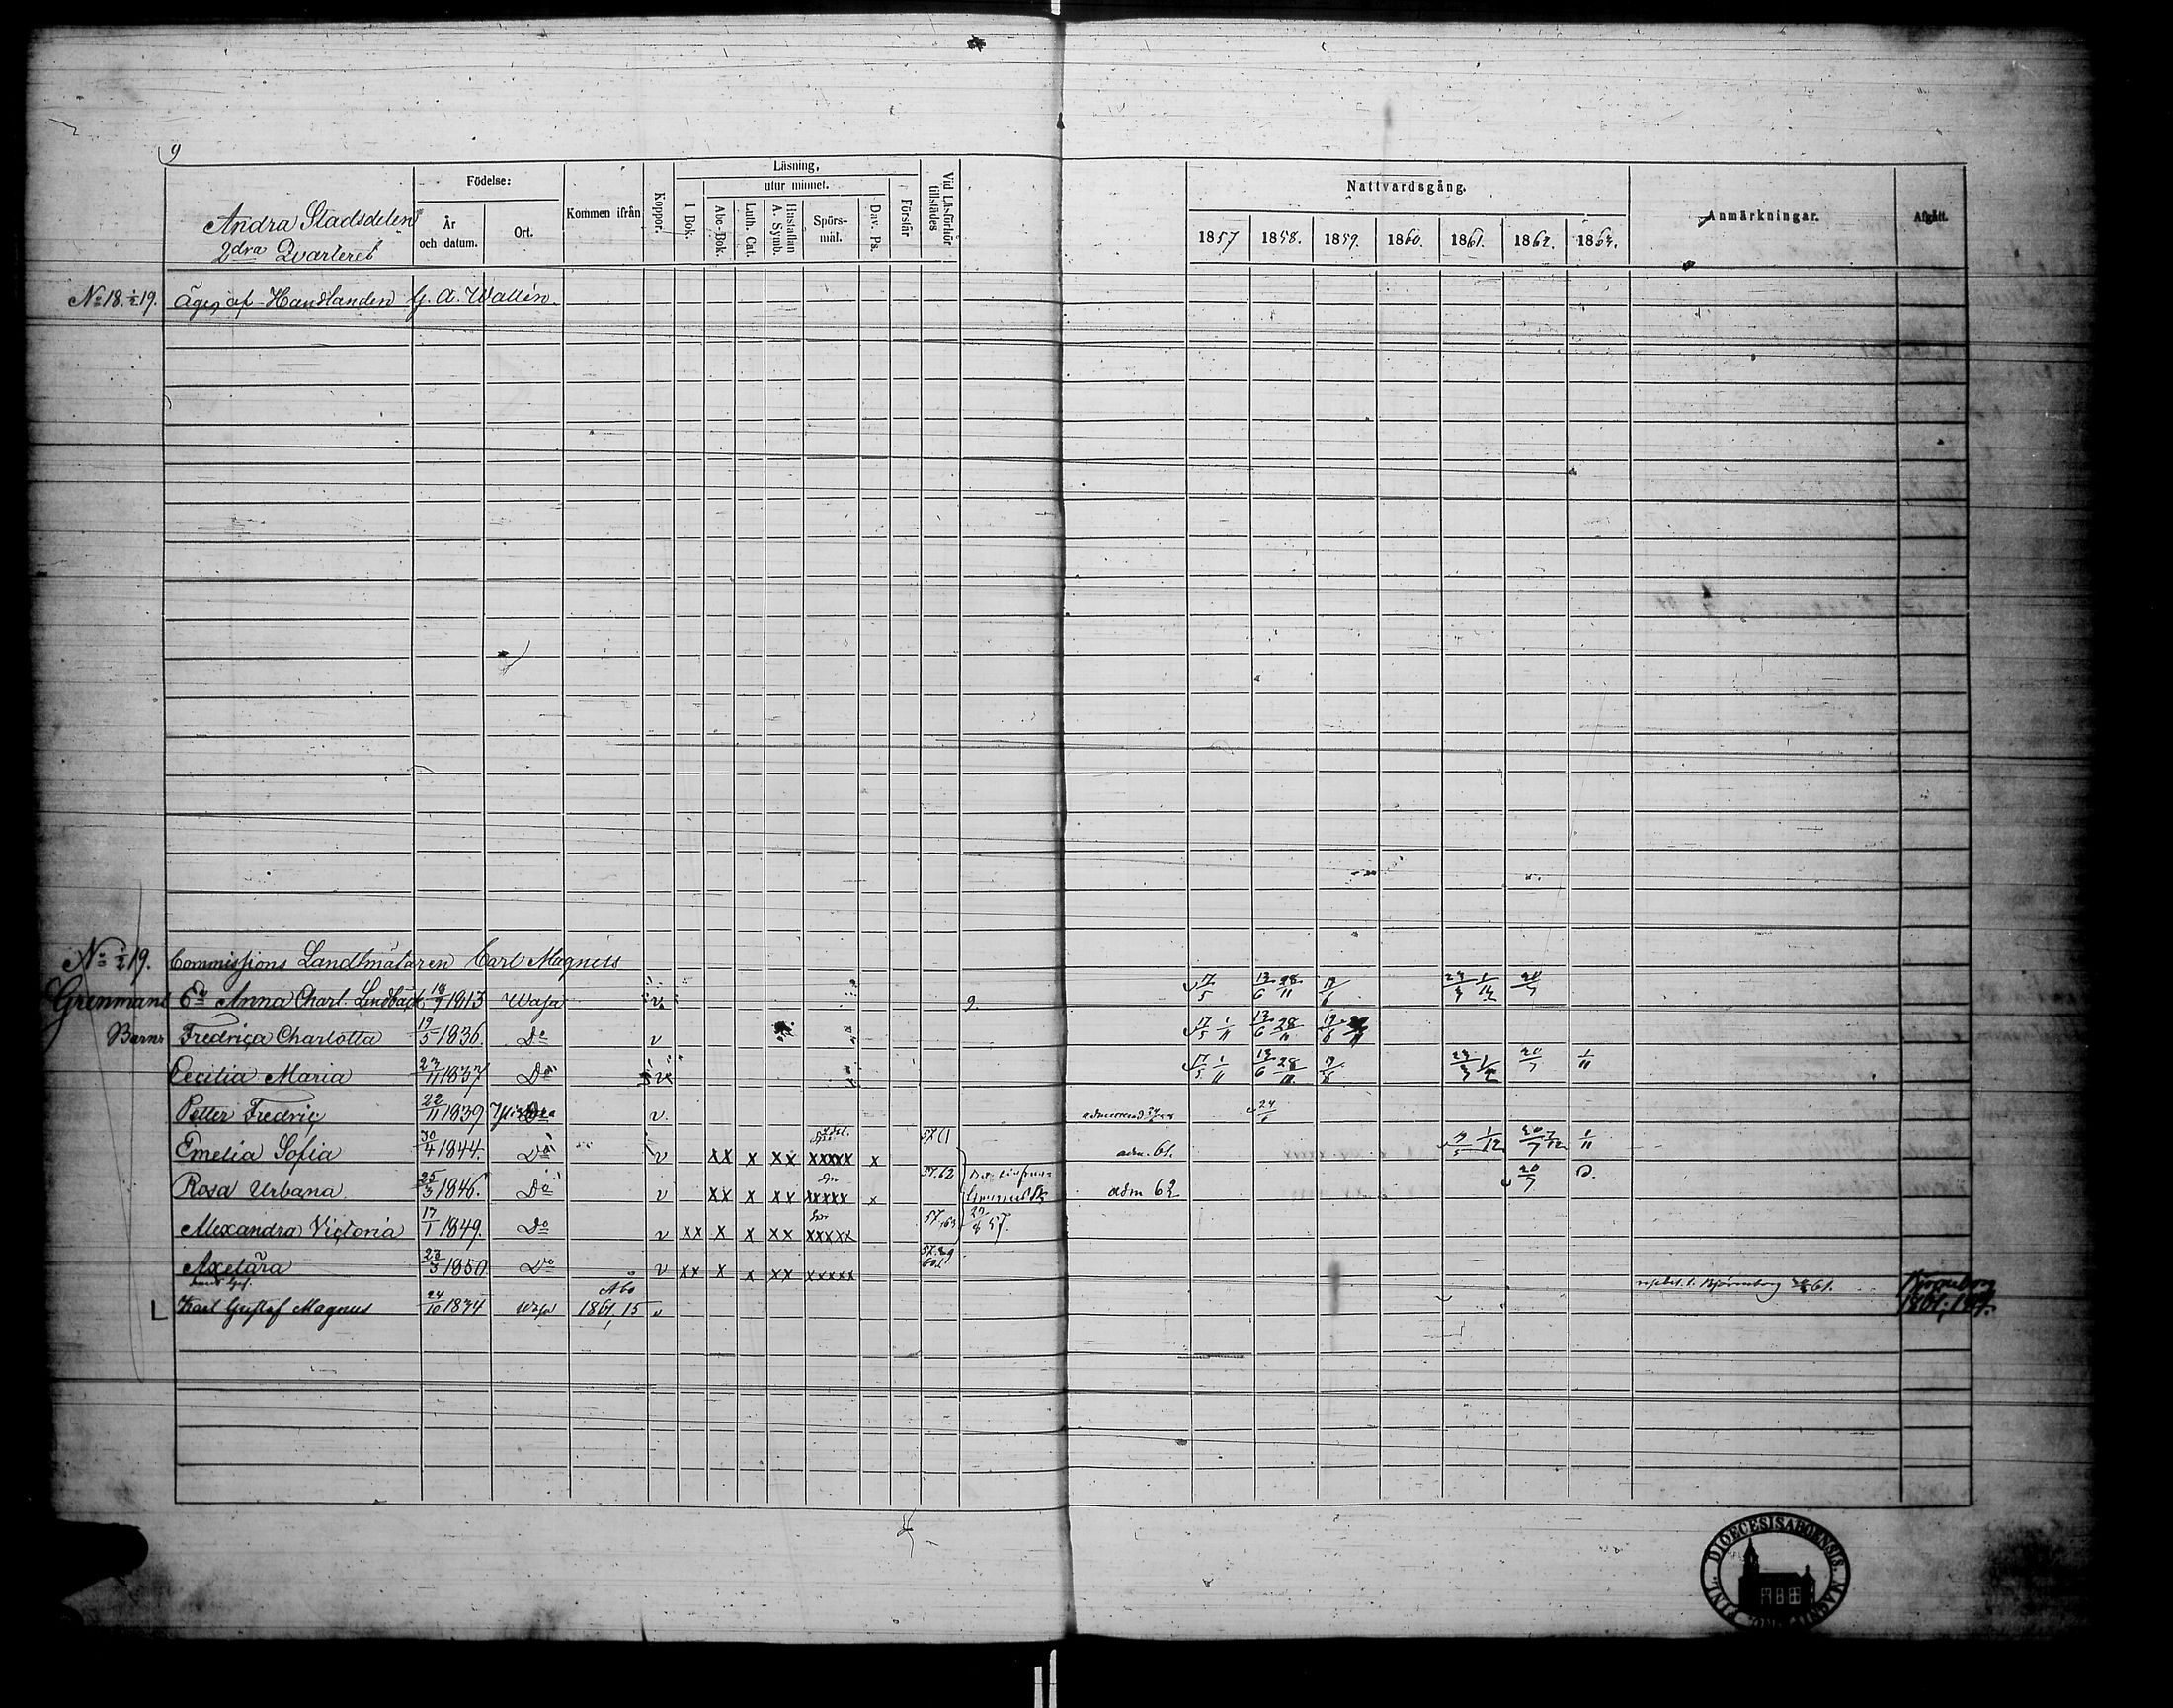 9
Andra Stadsdelens
2dra Qvarteret
Födelse:
År och datum.
Ort.
Kommen ifrån
Koppor.
Läsning,
utur minnet.
I Bok.
Abc-Bok.
Luth. Cat.
Hustaflan A. Symb.
Spörs-mål.
Dav. Ps.
Förstår
Vid Läsförhör tillstädes
Nattvardsgång.
1857 1858. 1859. 1860. 1861. 1862. 1863.
Anmärkningar.
Afgått.
No 18. ½ 19. Äges af Handlanden G. A. Wallén.
No ½ 19. Commissions Landtmätaren Carl Magnus
Grenmans Ea Anna Charl. Lindbäck 18/7 1813 Wasa v. 9. 17/5 13/6 28/11 20/7
Barn: Fredrica Charlotta 19/5 1836. Do v 17/5 1/11 13/6 28/11
Cecilia Maria 23/11 1837 Do v 17/5 1/11 13/6 28/11 20/7 1/11
Petter Fredric 22/11 1839 v. 24/6
Emelia Sofia 30/4 1844. Do v xx x xx xxxxx x 57 61 adm. 61. 1/12 20/7 1/11
Rosa Urbana 25/3 1846. Do v xx x xx xxxxx x 57.62 adm 62 20/7
Alexandra Victoria 17/1 1849. Do v xx x x xx xxxxx 57, 63 57.
Axelära 23/3 1850 Do v xx x x xx xxxxx
L Karl Gustaf Magnus 24/10 1834 Wasa Åbo 1861, 15 v t. Björneborg 61. Björneborg 1861,
FINL. DIOECESIS ABOENSIS. MAGNI DUC.